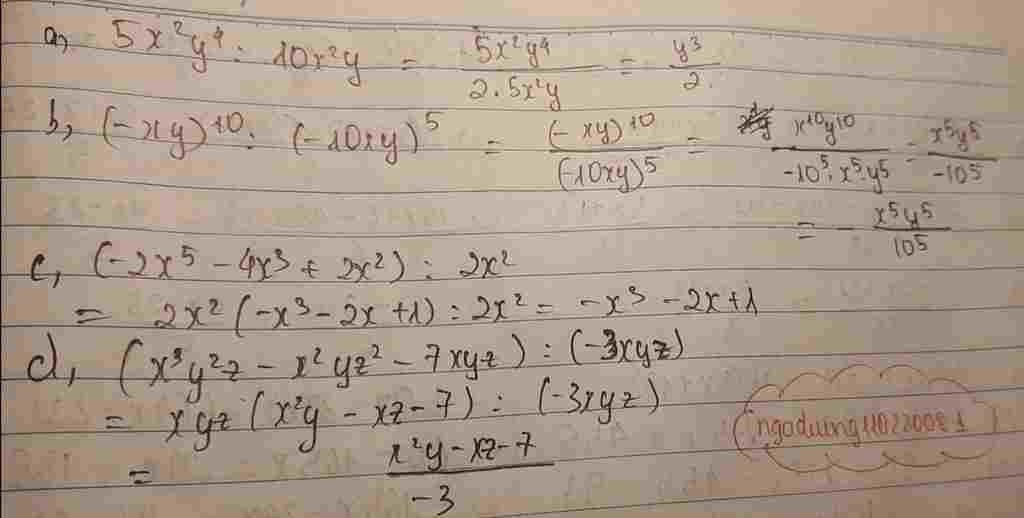 a, 5x²y⁴ : 10x²y = \frac{5x²y⁴}{2.5x²y} = \frac{y³}{2}
b, (-xy)¹⁰ : (-10xy)⁵ = \frac{(-xy)¹⁰}{(-10xy)⁵} = \frac{x¹⁰y¹⁰}{-10⁵.x⁵.y⁵} = \frac{x⁵y⁵}{-10⁵}
= -\frac{x⁵y⁵}{10⁵}
c, (-2x⁵ - 4x³ + 2x²) : 2x²
= 2x² (-x³ - 2x + 1) : 2x² = -x³ - 2x + 1
d, (x³y²z - x²yz² - 7xyz) : (-3xyz)
= xyz (x²y - xz - 7) : (-3xyz)
= \frac{x²y - xz - 7}{-3}